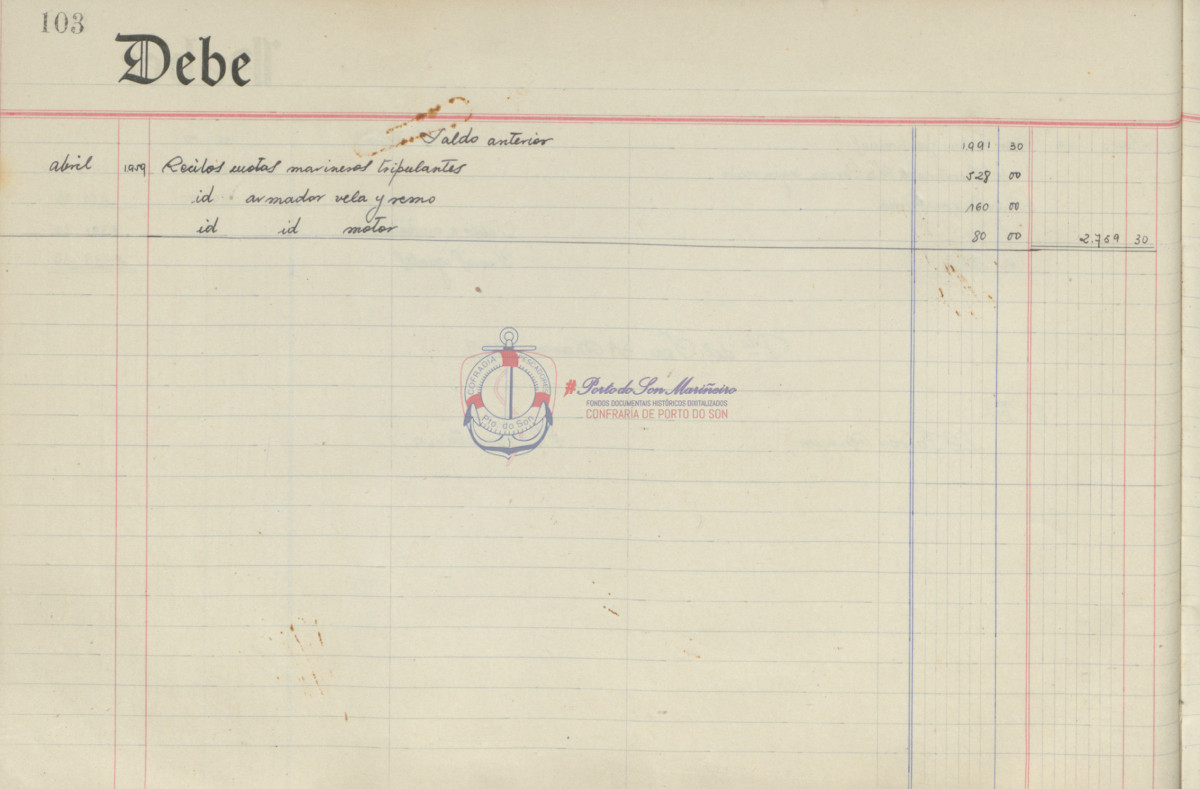 103
Debe
Saldo anterior 1991 30
abril 1959 Recibos cuotas marineros tripulantes 528 00
id armador vela y remo 160 00
id id motor 80 00 2.759 30
COFRADIA PESCADORES
Pto. do Son
#Porto do Son Mariñeiro
FONDOS DOCUMENTAIS HISTÓRICOS DIXITALIZADOS
CONFRARÍA DE PORTO DO SON